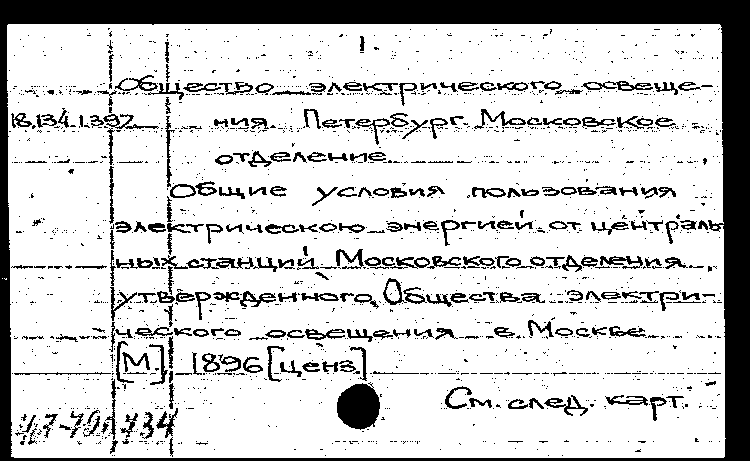 1.
Общество электрического освеще-
18.134.1.392 ния. Петербург. Московское
отделение.
Общие условия пользования
электрическою энергией от централь-
ных станций Московского отделения
утвержденного Общества электри-
ческого освещения в Москве
[М.] 1896 [ценз.]
См. след. карт.
734